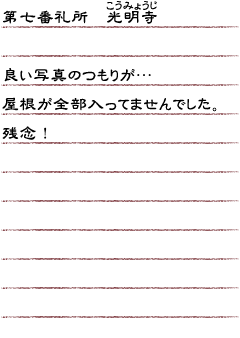 こうみょうじ
第七番礼所　光明寺
良い写真のつもりが…
屋根が全部入ってませんでした。
残念！